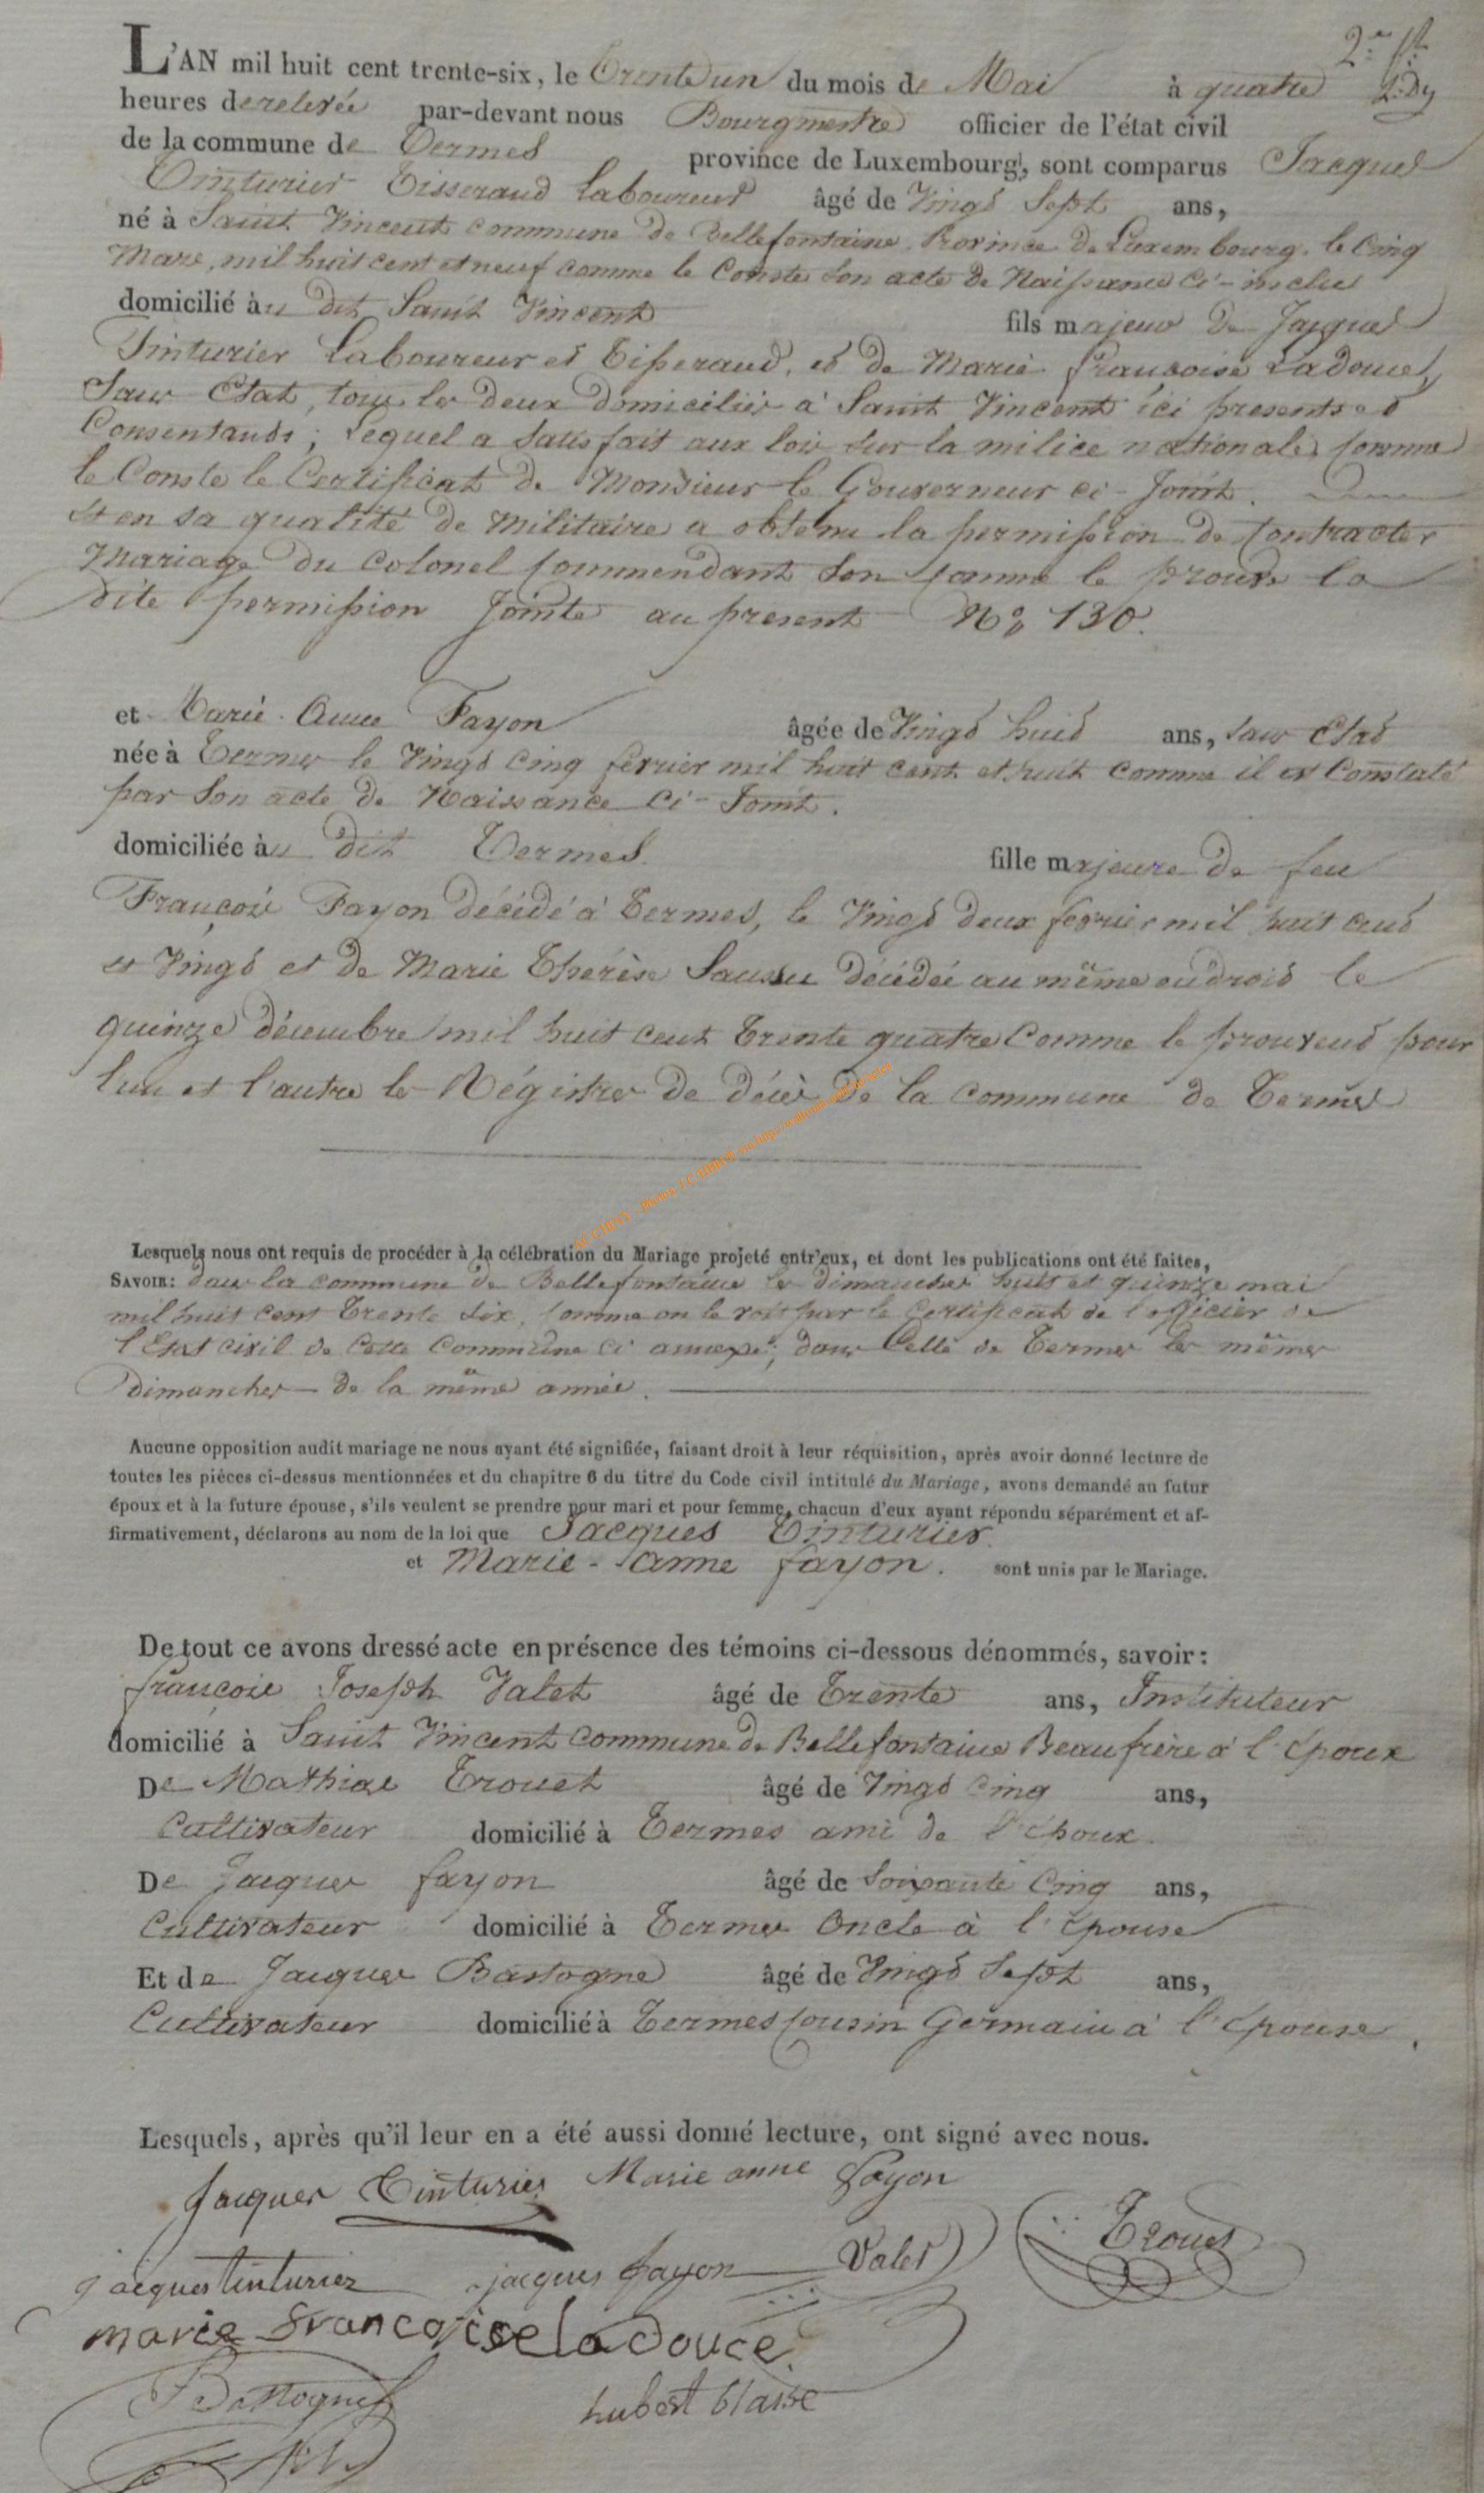 L'AN mil huit cent trente-six, le Trente un du mois de Mai à quatre
heures de relevée par-devant nous Bourgmestre officier de l'état civil
de la commune de Termes province de Luxembourg, sont comparus Jacques
Tinturier Tisserand Laboureur âgé de Vingt Sept ans,
né à Saint Vincent commune de Bellefontaine Province de Luxembourg, le Cinq
Mars, mil huit cent et neuf comme le Conste son acte de Naissance Ci-inclus
domicilié au dit Saint Vincent fils majeur de Jacques
Tinturier Laboureur et Tisserand, et de Marie françoise Ladouce,
Sans Etat, tous les deux domiciliés à Saint Vincent ici presents et
Consentants; Lequel a satisfait aux lois sur la milice nationale, comme
le Conste le Certificat de Monsieur le Gouverneur ci-Joint.
Et en sa qualité de Militaire a obtenu la permission de Contracter
Mariage du Colonel Commendant son comme le prouve la
dite permission Jointe au present N° 130.
et Marie Anne Fayon âgée de Vingt huit ans, sans Etat
née à Termes le Vingt Cinq fevrier mil huit cent et huit comme il est Constaté
par son acte de Naissance Ci-Joint.
domiciliée au dit Termes fille majeure de feu
François Fayon décédé à Termes, le Vingt deux fevrier mil huit cent
et Vingt et de Marie Thérèse Saussu décédée au même endroit le
quinze décembre mil huit cent Trente quatre Comme le prouvent pour
l'un et l'autre les Régistres de décès de la Commune de Termes
Lesquels nous ont requis de procéder à la célébration du Mariage projeté entr'eux, et dont les publications ont été faites,
SAVOIR: dans la commune de Bellefontaine les dimanches huit et quinze mai
mil huit cent Trente Six, comme on le voit par le Certificat de l'officier de
l'Etat civil de Cette Commune ci annexé; dans Celle de Termes les mêmes
dimanches de la même année.
Aucune opposition audit mariage ne nous ayant été signifiée, faisant droit à leur réquisition, après avoir donné lecture de
toutes les pièces ci-dessus mentionnées et du chapitre 6 du titre du Code civil intitulé du Mariage, avons demandé au futur
époux et à la future épouse, s'ils veulent se prendre pour mari et pour femme, chacun d'eux ayant répondu séparément et af-
firmativement, déclarons au nom de la loi que Jacques Tinturier.
et Marie-Anne fayon. sont unis par le Mariage.
De tout ce avons dressé acte en présence des témoins ci-dessous dénommés, savoir:
françois Joseph Valet âgé de Trente ans, Instituteur
domicilié à Saint Vincent Commune de Bellefontaine Beaufrère à l'époux
De Mathias Trouet âgé de Vingt Cinq ans,
Cultivateur domicilié à Termes ami de l'époux
De Jacques fayon âgé de Soixante Cinq ans,
Cultivateur domicilié à Termes Oncle à l'épouse
Et de Jacques Bastogne âgé de Vingt Sept ans,
Cultivateur domicilié à Termes Cousin Germain à l'épouse.
Lesquels, après qu'il leur en a été aussi donné lecture, ont signé avec nous.
Jacques Tinturier Marie anne fayon
Trouet
jacques tinturier jacques fayon Valet
marie francoise ladouce
J Bastogne hubert blaise